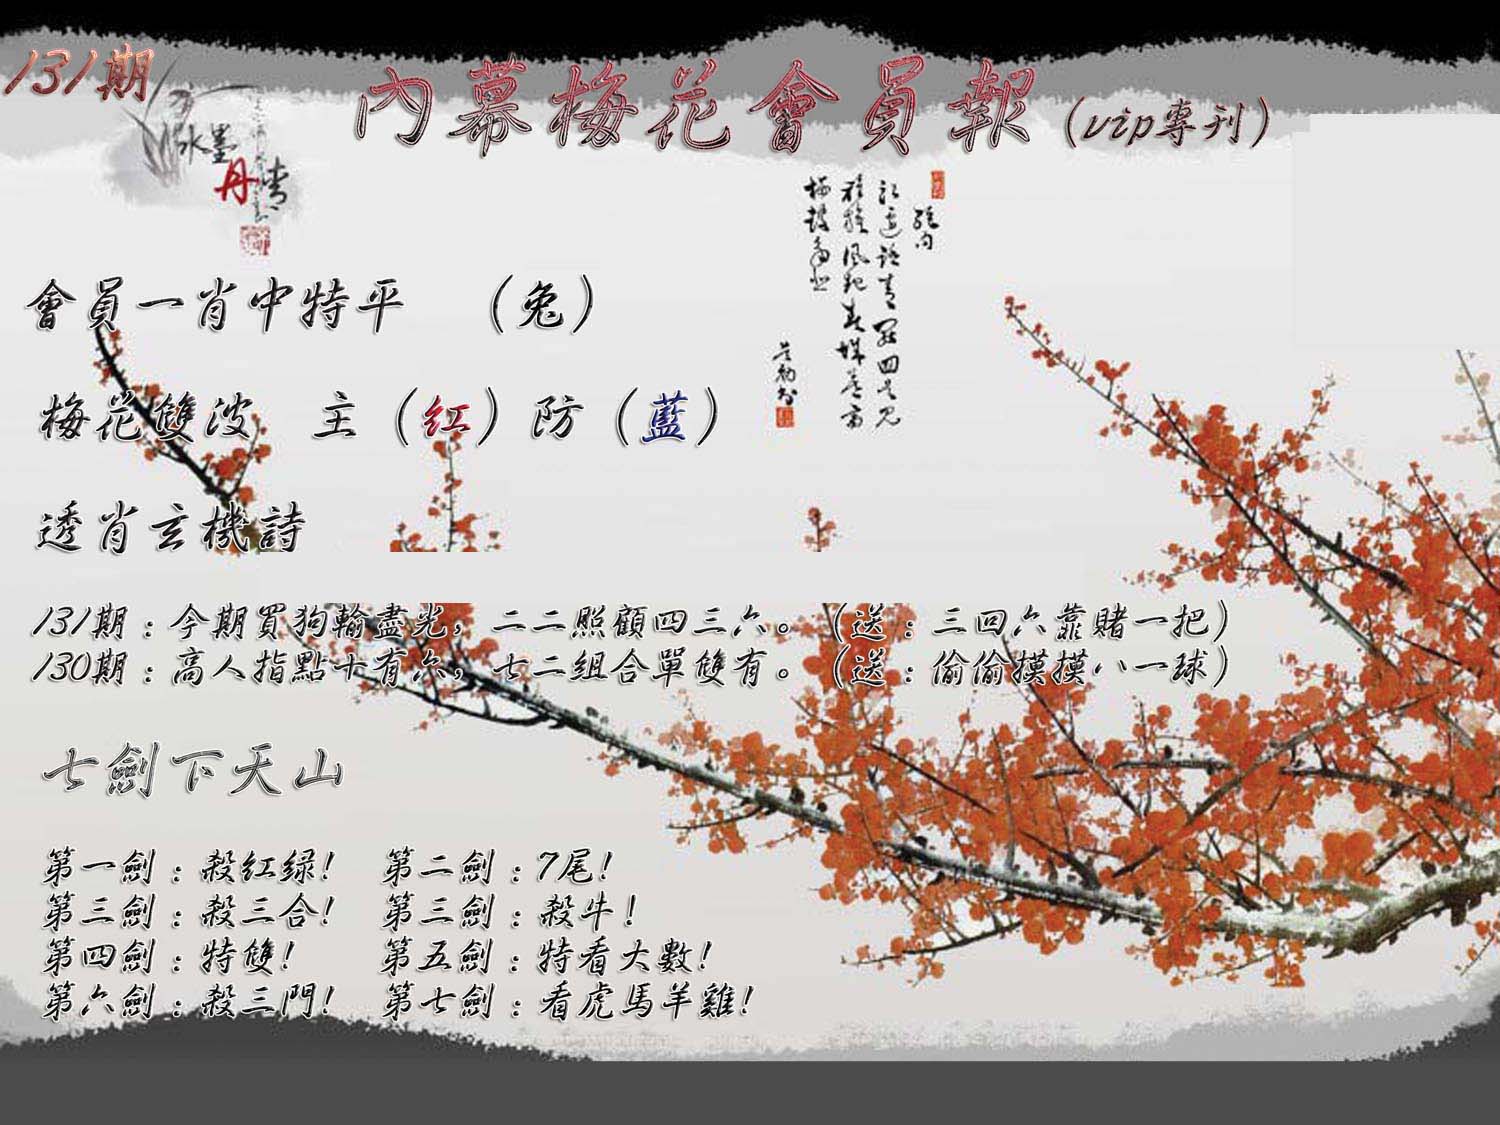 131期
內幕梅花會員報（vip專刊）
水墨
丹青
會員一肖中特平　（兔）
梅花雙波　主（紅）防（藍）
透肖玄機詩
131期：今期買狗輸盡光，二二照顧四三六。（送：三回六靠賭一把）
130期：高人指點十有六，七二组合單雙有。（送：偷偷摸摸八一球）
七劍下天山
第一劍：殺紅绿!　第二劍：7尾!
第三劍：殺三合!　第三劍：殺牛!
第四劍：特雙!　第五劍：特看大數!
第六劍：殺三門!　第七劍：看虎馬羊雞!